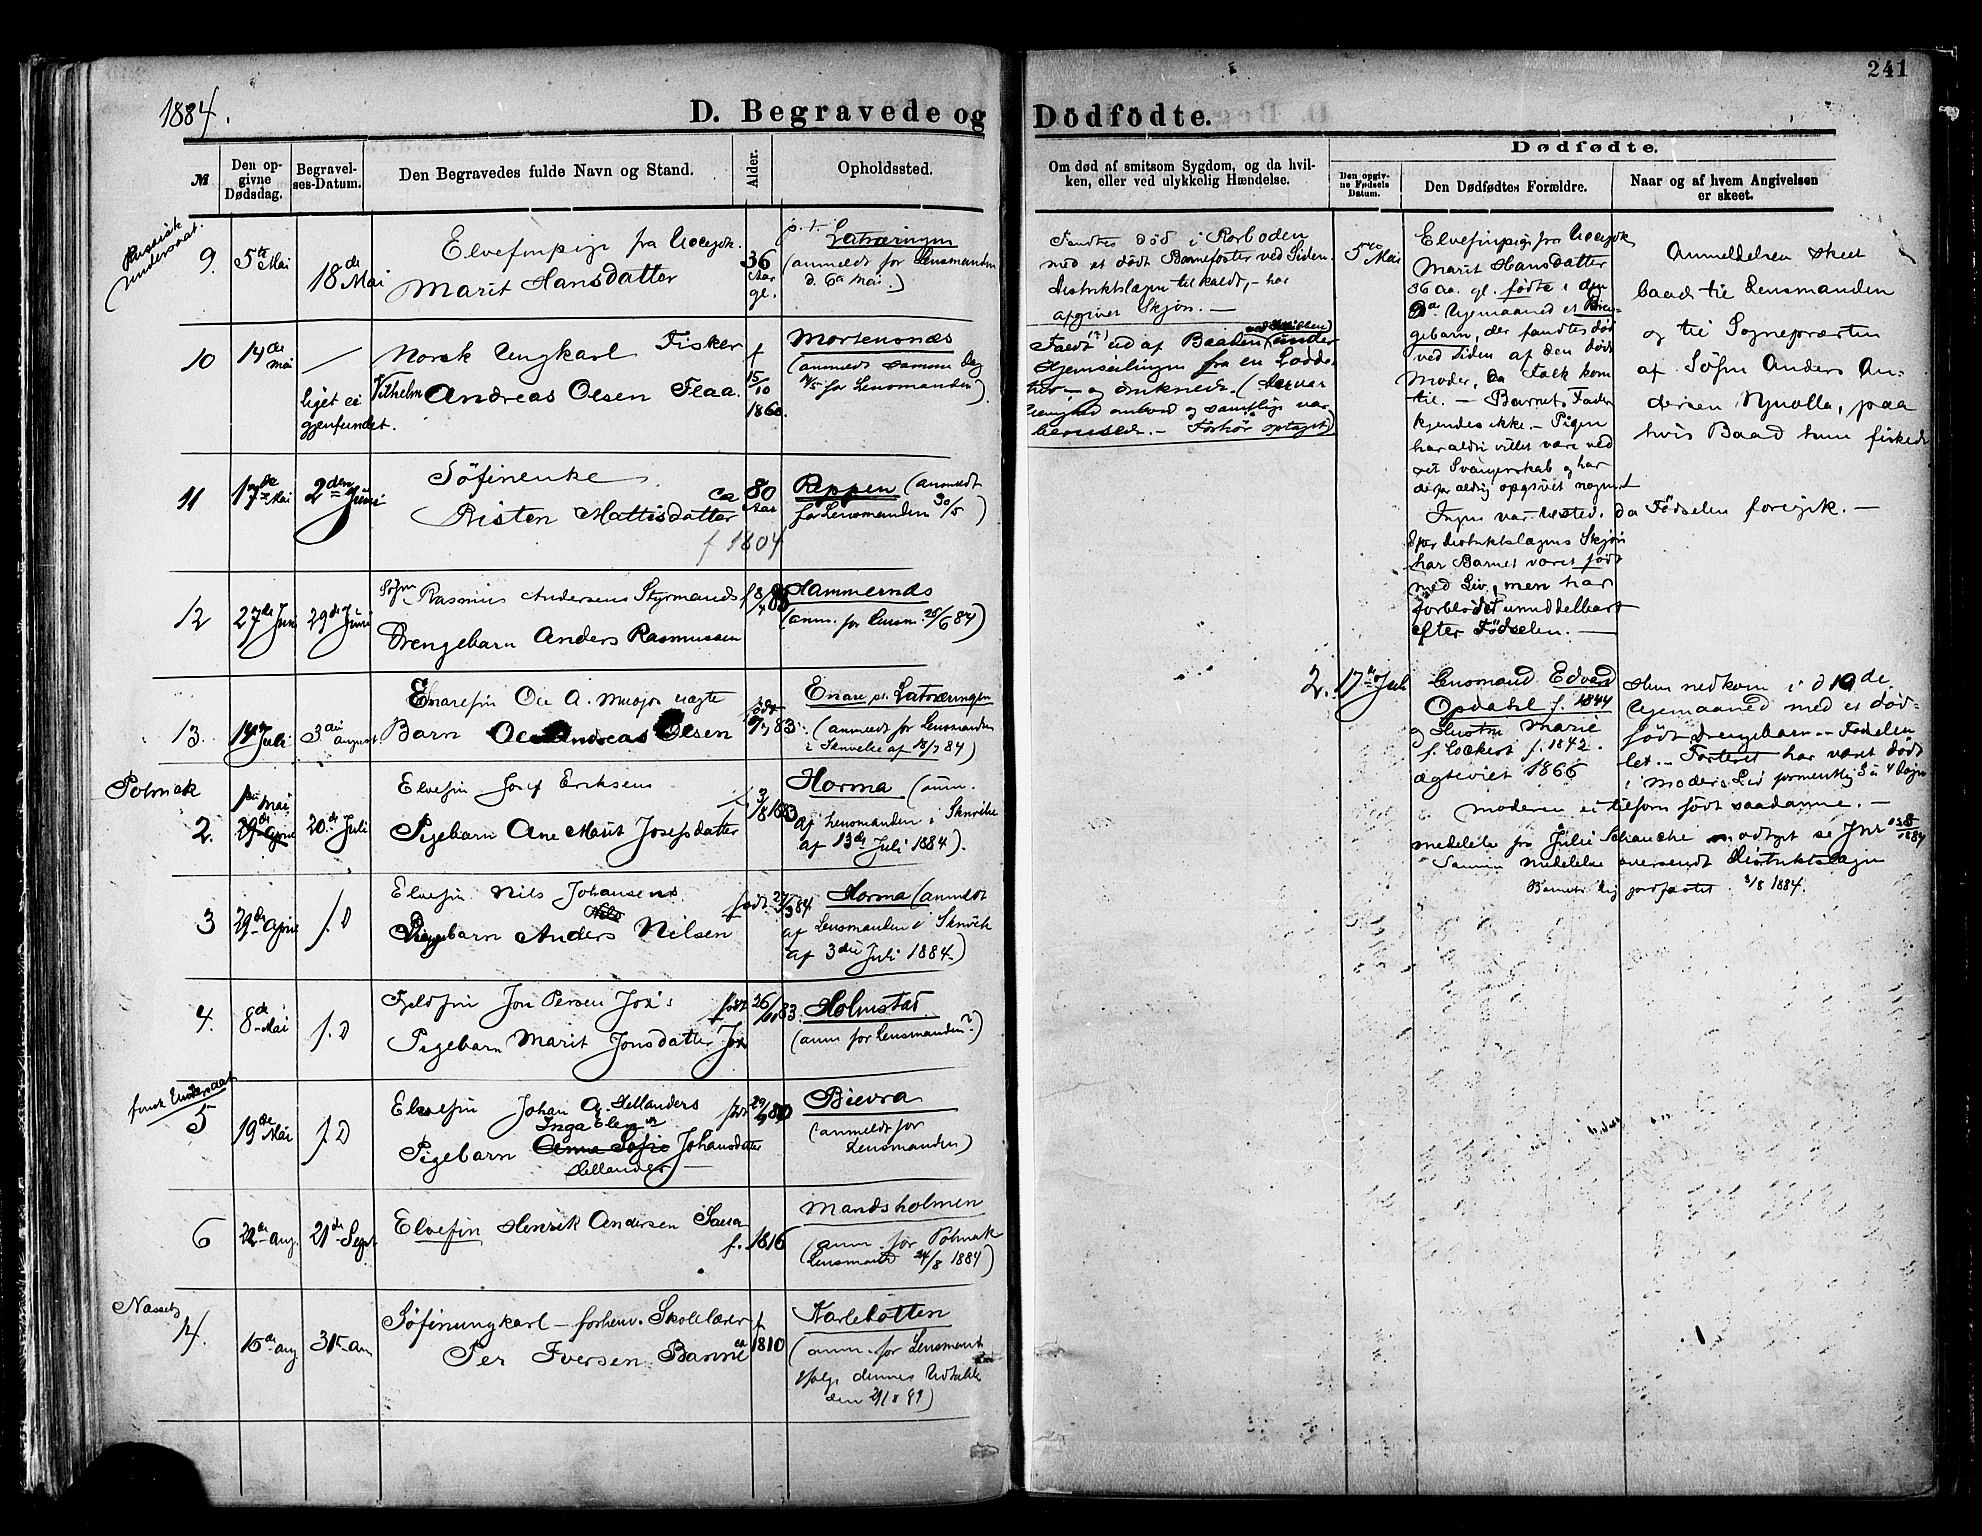 241
1884.
D. Begravede og Dödfödte.
№
Den opgivne Dødsdag.
Begravelses-Datum.
Den Begravedes fulde Navn og Stand.
Alder.
Opholdssted.
Om død af smitsom Sygdom, og da hvilken, eller ved ulykkelig Hændelse.
Dødfødte.
Den opgivne Fødsels Datum.
Den Dødfødtes Forældre.
Naar og af hvem Angivelsen er skeet.
Russisk undersaat.
9.
5te Mai
18de Mai
Elvefinpige fra
Marit Hansdatter
36 Aar gl.
p. t.
(anmeldt for Lensmanden
d. 6te Mai.)
Fandtes død i Rorboden
med et dødt Barnefoster ved Siden.
Distriktslægen tilkaldt, – har
afgivet Skjøn. –
5te Mai
Elvefinpige fra
Marit Hansdatter
36 Aa. gl. fødte i den
Ugemaaned et Drengebarn, der fandtes død
ved Siden af den døde
Moder, da Folk kom
til. – Barnets Fader
kjendes ikke – Pigen
har aldri villet være ved
sit Svangerskab og har
derfor aldrig opgivet nogen
Ingen var tilsted, da Fødselen foregik. –
Efter Distriktslægens Skjøn
har Barnet været født
med Liv, men har
forblødet umiddelbart
efter Fødselen. –
Anmeldelsen skeet
baade til Lensmanden
og til Sognepræsten
af Søfin Anders Andersen
paa
hvis Baad hun fiskede
10
14de Mai
–
liget ei gjenfundet.
Norsk Ungkarl Fisker
Vilhelm Andreas Olsen Flaa.
f 15/10 1860.
Mortensnæs
(anmeldt samme Dag
for Lensmanden)
Faldt ud af Baaden under
Hjemseilingen fra en
og druknede. (Der var
ombord og samtlige var
berusede. – Forhør optaget)
11
17de Mai
2den Juni
Søfinenke
Risten Mattisdatter
ca 80 Aar
f 1804
Reppen (anmeldt
for Lensmanden 30/5)
12
27de Juni
29de Juni
Søfin Rasmus Andersens Styrmands
Drengebarn Anders Rasmussen
Hammernæs
(anm. for Lensm. 28/6 84)
13.
14de Juli
3die august
Enarefin Ole A. Musojs ægte
Barn Ole Andreas Olsen
født
83.
Enare pt.
(anmeldt for Lensmanden
i Skrivelse af 18/7 84)
Polmak
2.
1ste Mai
29de April
20de Juli
Elvefin Josef Eriksens
Pigebarn Ane Marit Josefsdatter
3/8 1883
Horma (anm.
af Lensmanden i Skrivelse
af 13de Juli 1884).
3
29de April
s. D
Elvefin Nils Johansens
Drengebarn Anders Nilsen
født 27/3 84
Horma (anmeldt
af Lensmanden i Skrivelse
af 3die Juli 1884.)
4.
8de Mai
s. D
Fjeldfin Jon Persen Jox's
Pigebarn Marit Jonsdatter Jox
født 26/10 83.
Holmstad.
(anm for Lensmanden?)
finsk Undersaat
5
19de Mai
s. D
Elvefin Johan A. Hellanders
Inga Elen
Pigebarn Anna Sofie Johansdatter
Hellander –
født
Bievra
(anmeldt for
Lensmanden)
6
22de Aug.
21de Sept
Elvefin Henrik Andersen
f. 1816
Mandsholmen
(anm. for Polmak
Lensmand 24/8 1884)
Nasseby
14.
15de aug
31te au
Søfinungkarl – forhenv. Skolelærer
Per Iversen Banne
f ca 1810
Karlebotten
(anm. for Lensmand
ifølge dennes Udtalelse
den 29/8 84)
2.
17de Juli
Lensmand Edvard
Opdahl f. 1844
og Hustru Marie
f. Lockert f. 1842.
ægteviet 1866
Hun nedkom i d 10de
Ugemaaned med et dødfødt Drengebarn – Fødselen
let. – Fosteret har været dødt
i Moders Liv formentlig 3 à 4 Døgn
Moderen ei tilforn født saadanne. –
meddelelse fra Julie Schanche modtaget se Jnr 138/1884
Samme meddelelse oversendt Distriktslægen
Barnets Lig jordfæstet 3/8 1884.